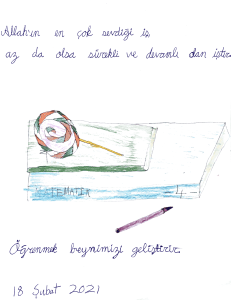 Allah'ın en çok sevdiği iş
az da olsa sürekli ve devamlı olan iştir.
MATEMATİK 4
Öğrenmek beynimizi geliştirir.
18 Şubat 2021